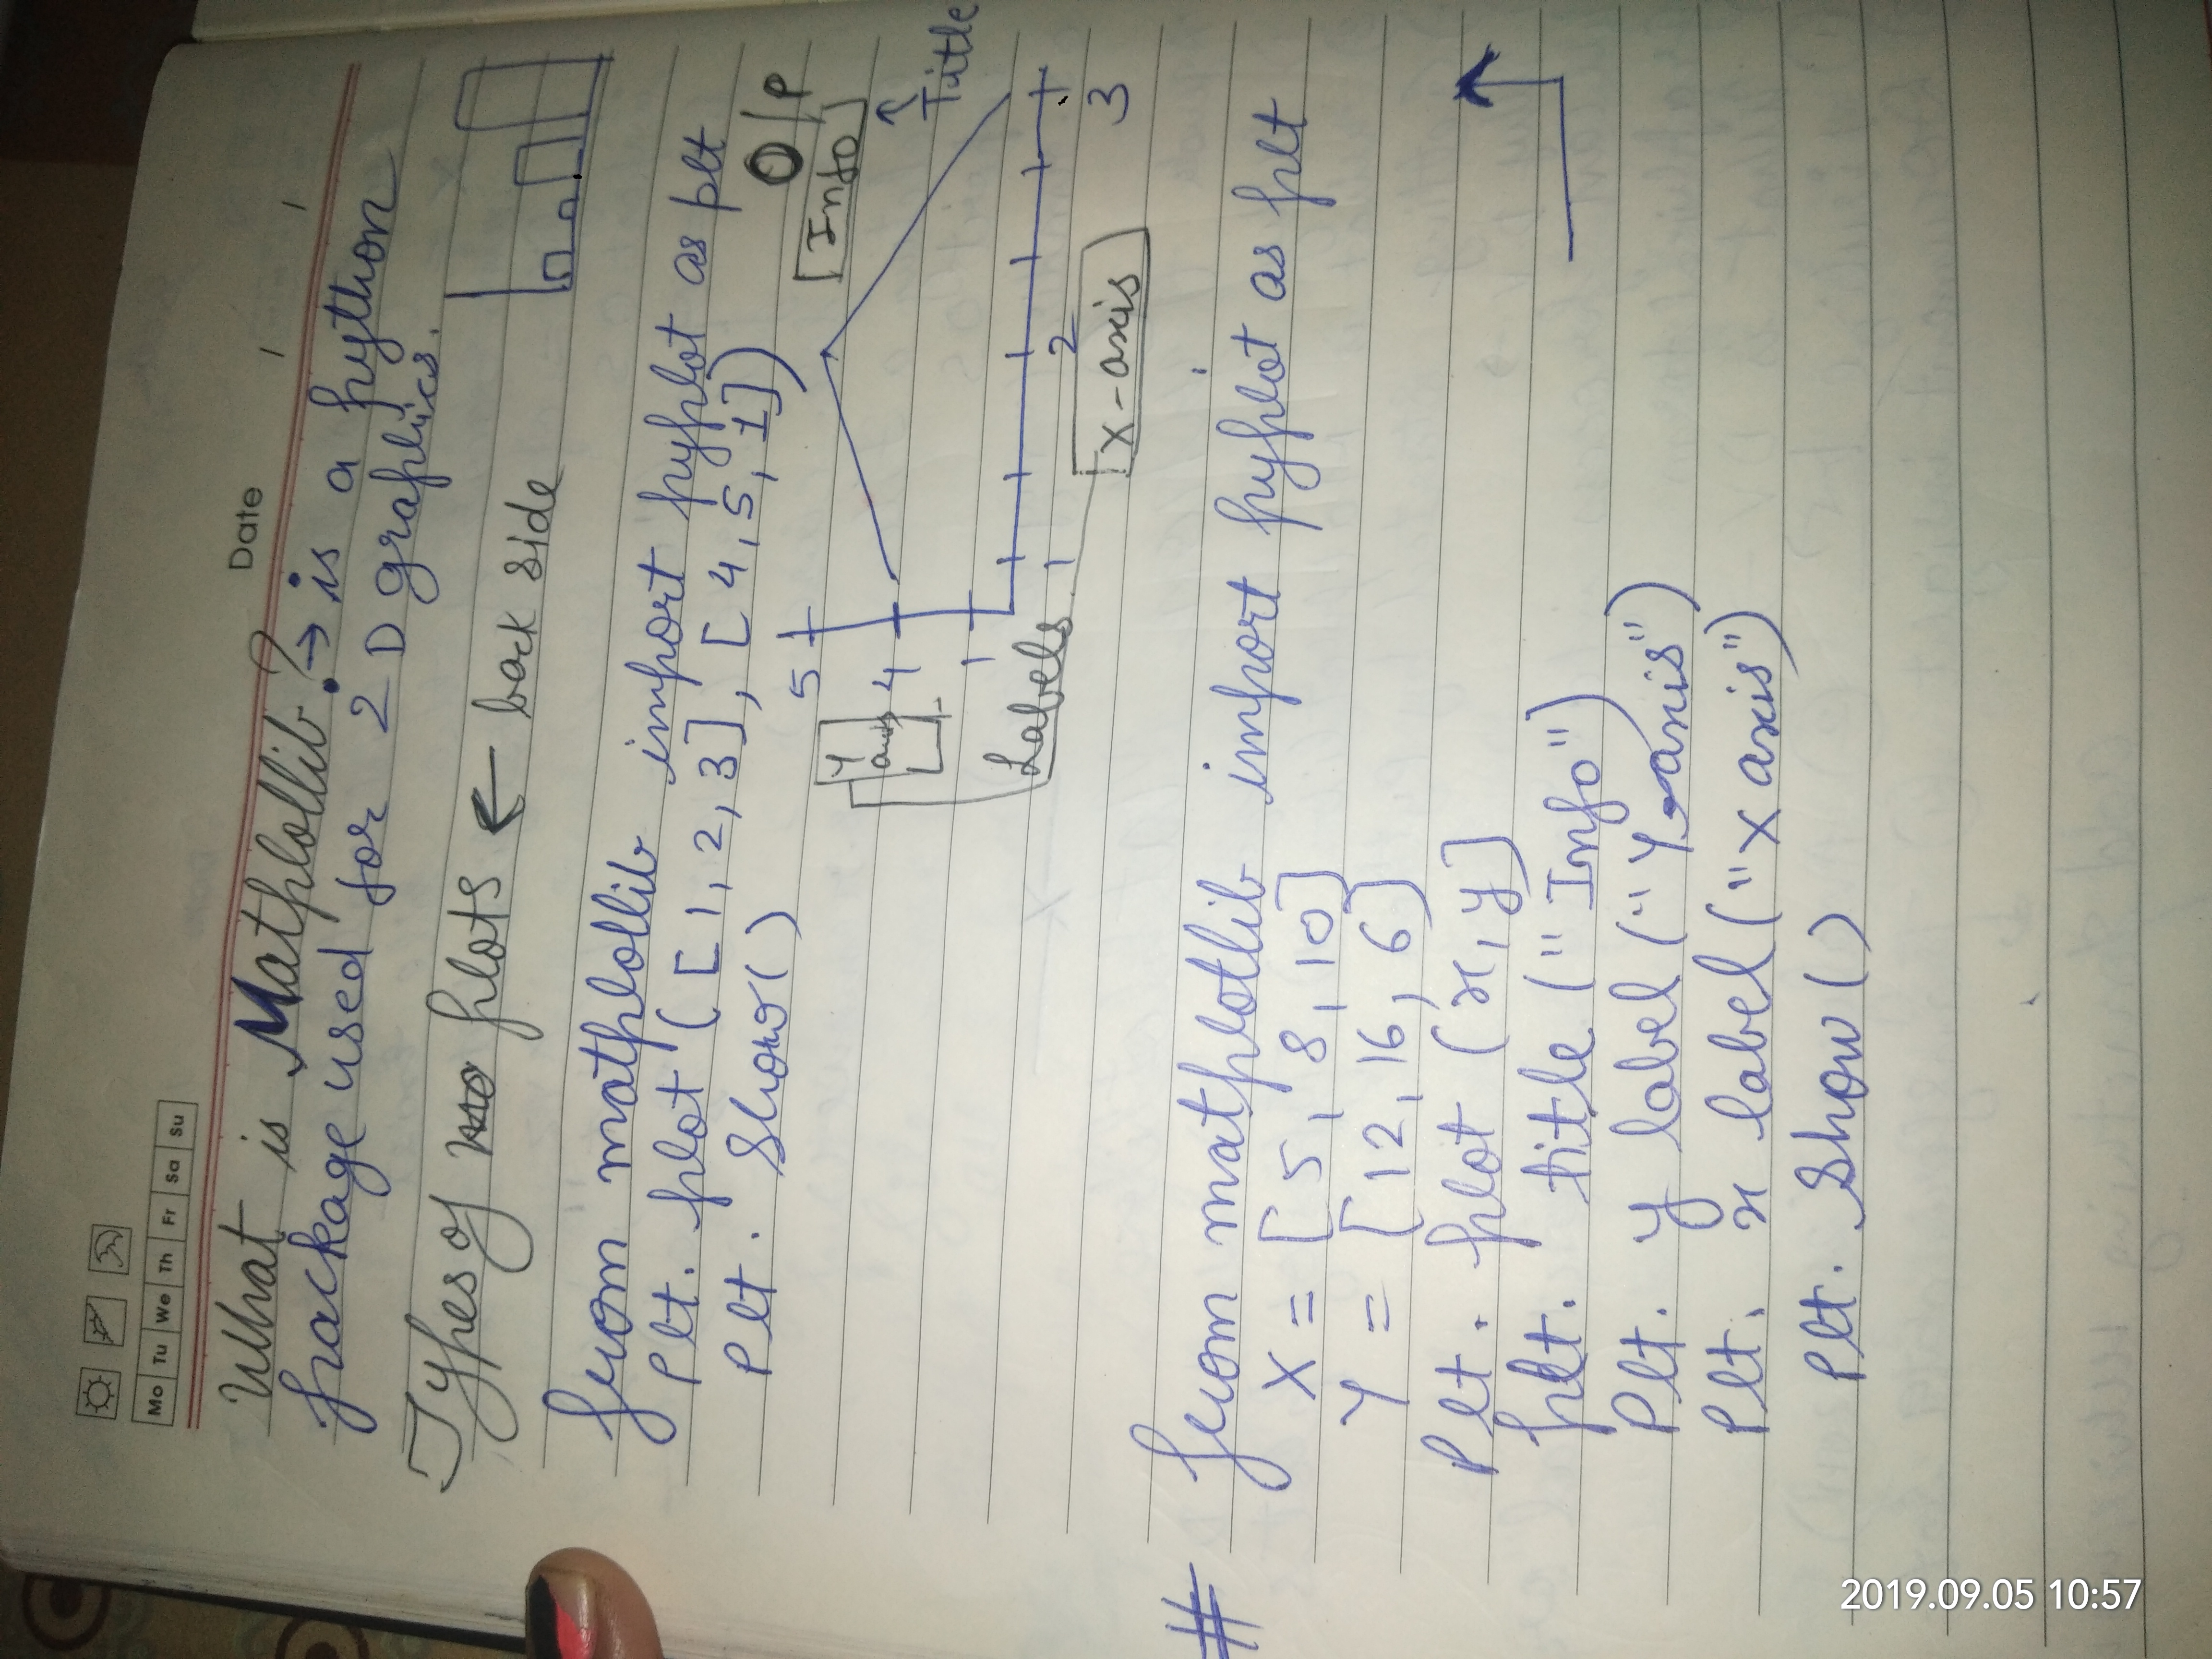 Date / /
Mo Tu We Th Fr Sa Su
What is Matplollib? → is a python
package used for 2 D graphics.
Types of plots ← back side
from matplollib import pyplot as plt
Plt. plot ([1,2,3], [4,5,1])
Plt. Show()
O/P
[Info]
Title
5
4
1
Y
axis
Labels
1 2 3
X-axis
# from matplotlib import pyplot as plt
X = [5, 8, 10]
Y = [12, 16, 6]
Plt. plot (x, y]
plt. title ("Info")
Plt. y label ("Y-axis")
Plt. x label ("X axis")
Plt. Show()
2019.09.05 10:57